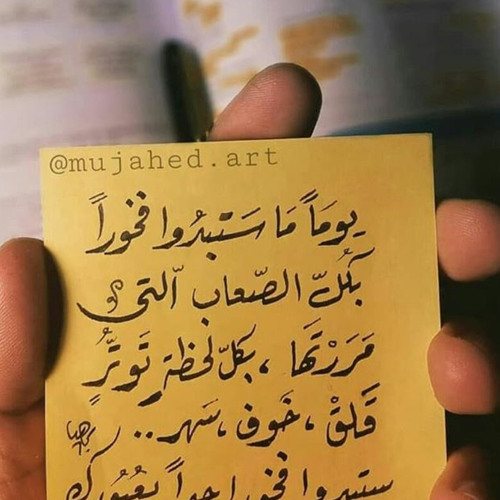 @mujahed.art
يوماً مَا سَتبدُوا فخوراً
بكُلّ الصّعاب الّتي
مَررْتهَا ، بكلّ لحظةِ تَوتّرٍ
قَلقْ ، خَوف ، سَهر ..
ستبدوا فخوراً جداً بعُبُورك